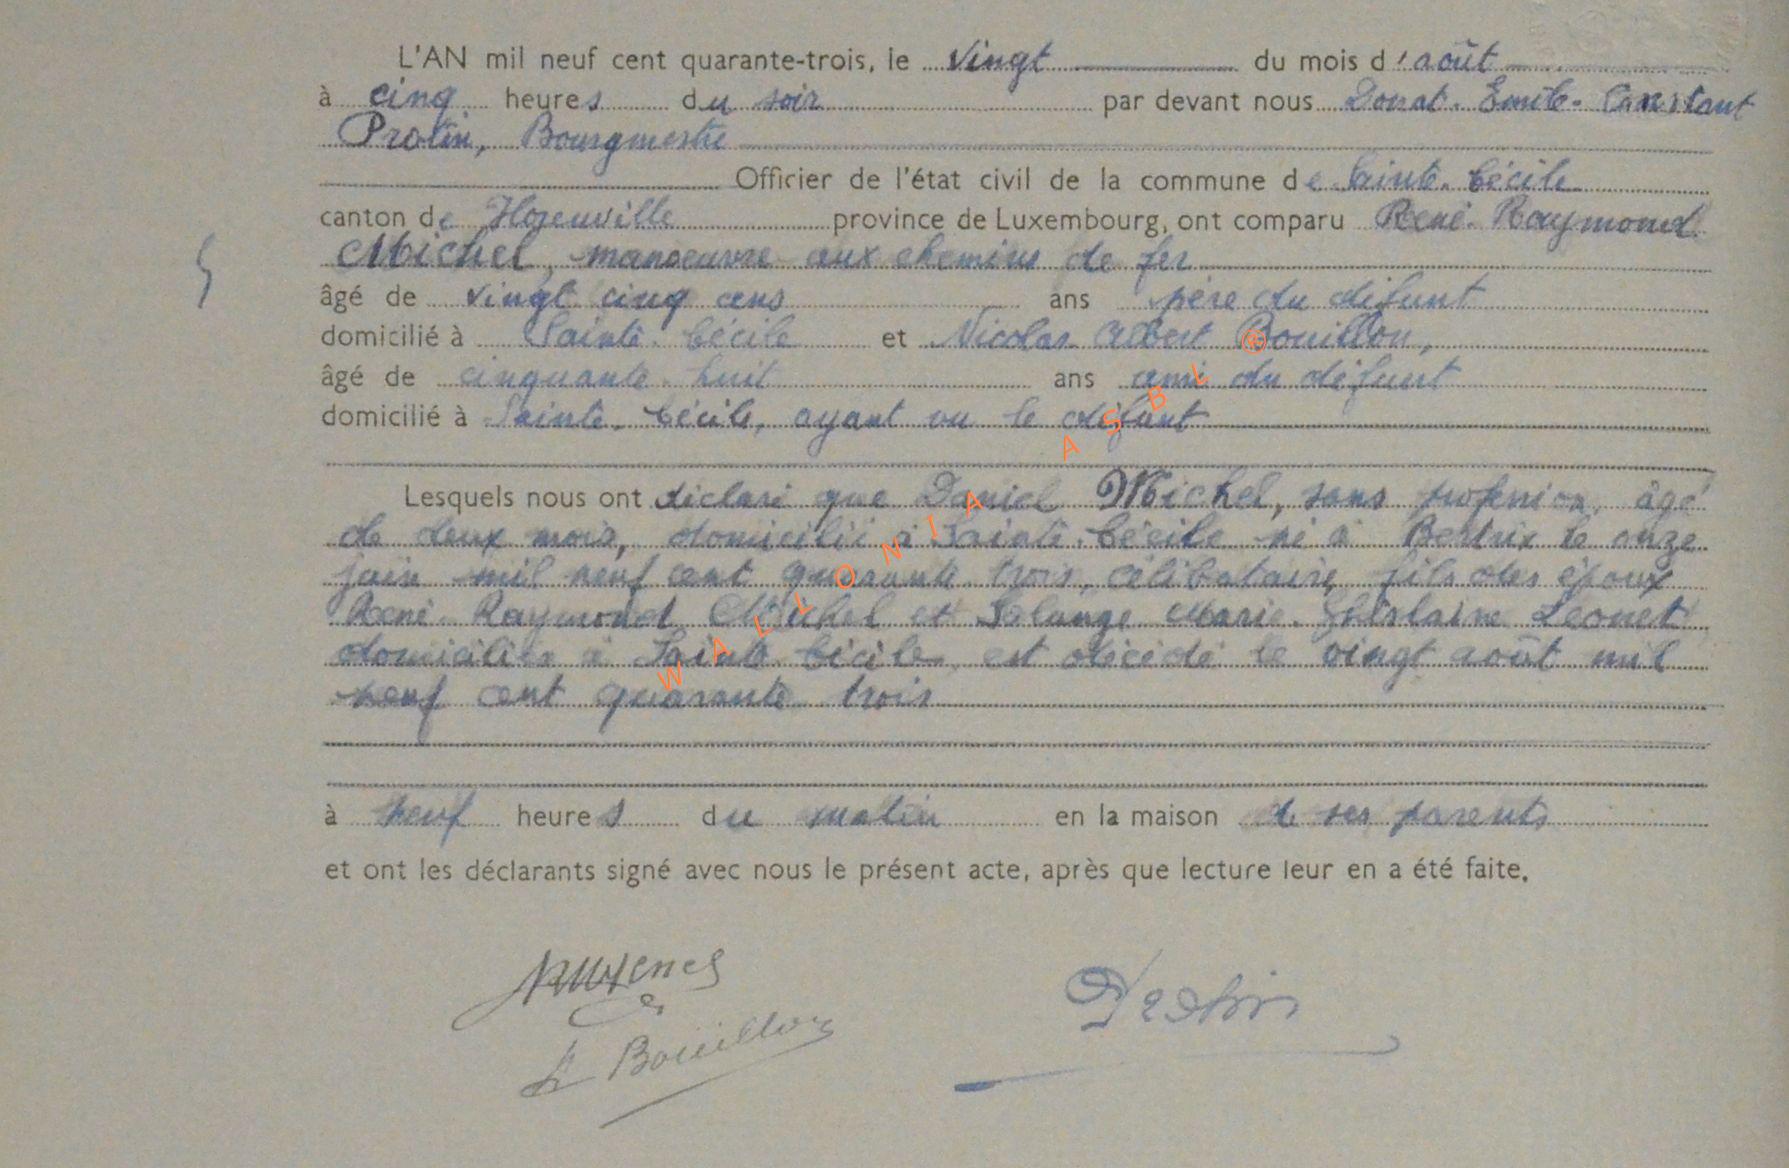 L'AN mil neuf cent quarante-trois, le vingt du mois d'août
à cinq heures du soir par devant nous Donat. Emile. Constant
Protin, Bourgmestre
Officier de l'état civil de la commune de Sainte. Cécile
canton de Florenville province de Luxembourg, ont comparu René. Raymond
Michel, manoeuvre aux chemins de fer
âgé de vingt cinq ans ans père du défunt
domicilié à Sainte. Cécile et Nicolas Albert Bouillon,
âgé de cinquante. huit ans ami du défunt
domicilié à Sainte. Cécile, ayant vu le défunt
Lesquels nous ont déclaré que Daniel Michel, sans profession, âgé
de deux mois, domicilié à Sainte. Cécile né à Bertrix le onze
juin mil neuf cent quarante. trois, célibataire, fils des époux
René. Raymond Michel et Solange Marie. Ghislaine Leonet
domiciliés à Sainte. Cécile, est décédé le vingt août mil
neuf cent quarante trois
à neuf heures du matin en la maison de ses parents
et ont les déclarants signé avec nous le présent acte, après que lecture leur en a été faite.
Bouillon
WALLONIA ASBL ®